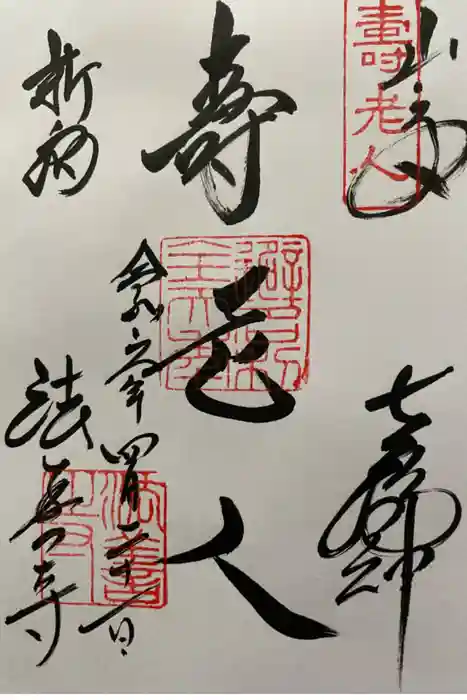 壽老人
山之手
七福神
壽老人
令和六年四月二十一日
法善寺